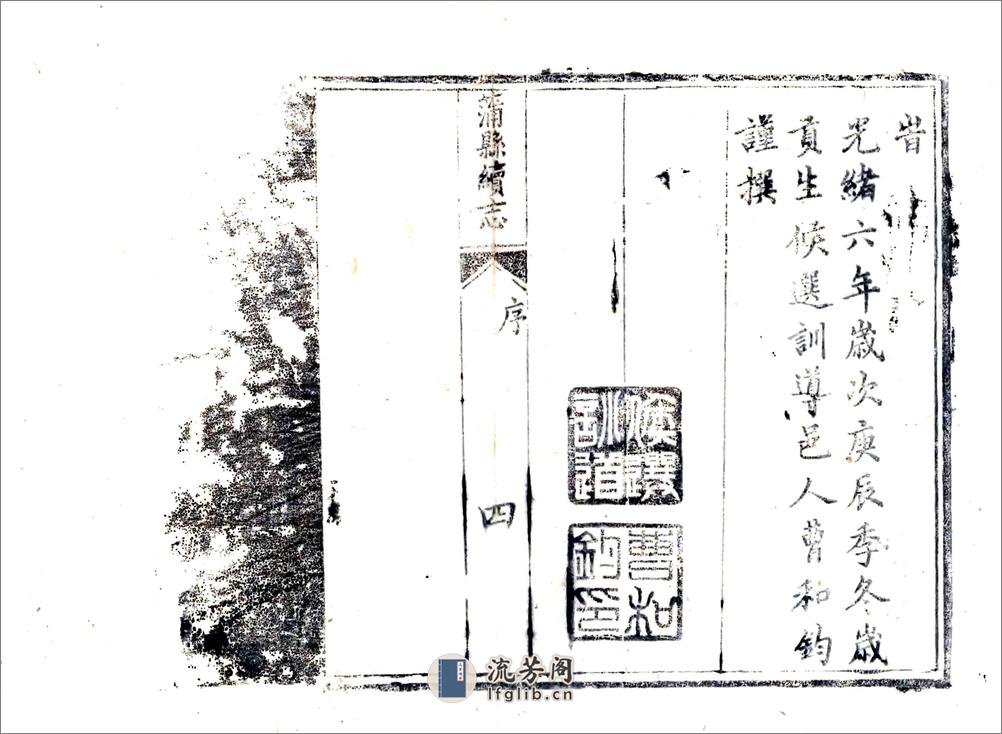 旹
光緒六年歲次庚辰季冬歲
貢生候選訓導邑人曹和鈞
謹撰
候選訓導
曹和鈞印
蒲縣續志
序
四
流芳阁
lfglib.cn